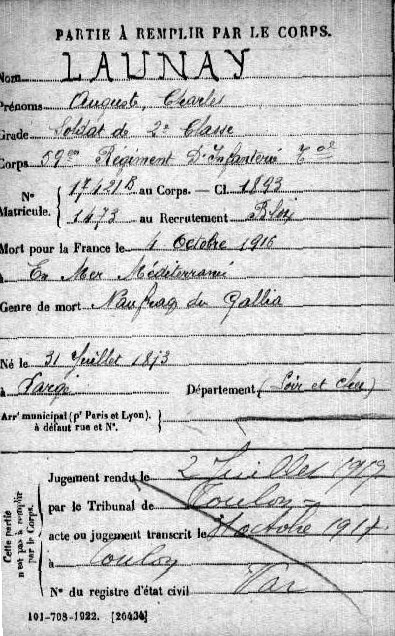 PARTIE À REMPLIR PAR LE CORPS.
Nom LAUNAY
Prénoms Auguste, Charles
Grade Soldat de 2e Classe
Corps 59em Régiment D'Infanterie Tal
Nº Matricule. { 17421B au Corps. — Cl. 1893
1473 au Recrutement Blois
Mort pour la France le 4 Octobre 1916
à En Mer Méditerranée
Genre de mort Naufrage du Gallia
Né le 31 Juillet 1873
à Département (Loir et Cher)
Arrt municipal (pr Paris et Lyon),
à défaut rue et Nº. }
Cette partie n'est pas à remplir par le Corps.
Jugement rendu le 2 Juillet 1917
par le Tribunal de Toulon
acte ou jugement transcrit le octobre 1917
à Toulon
Nº du registre d'état civil Var
101-708-1922. [26434]